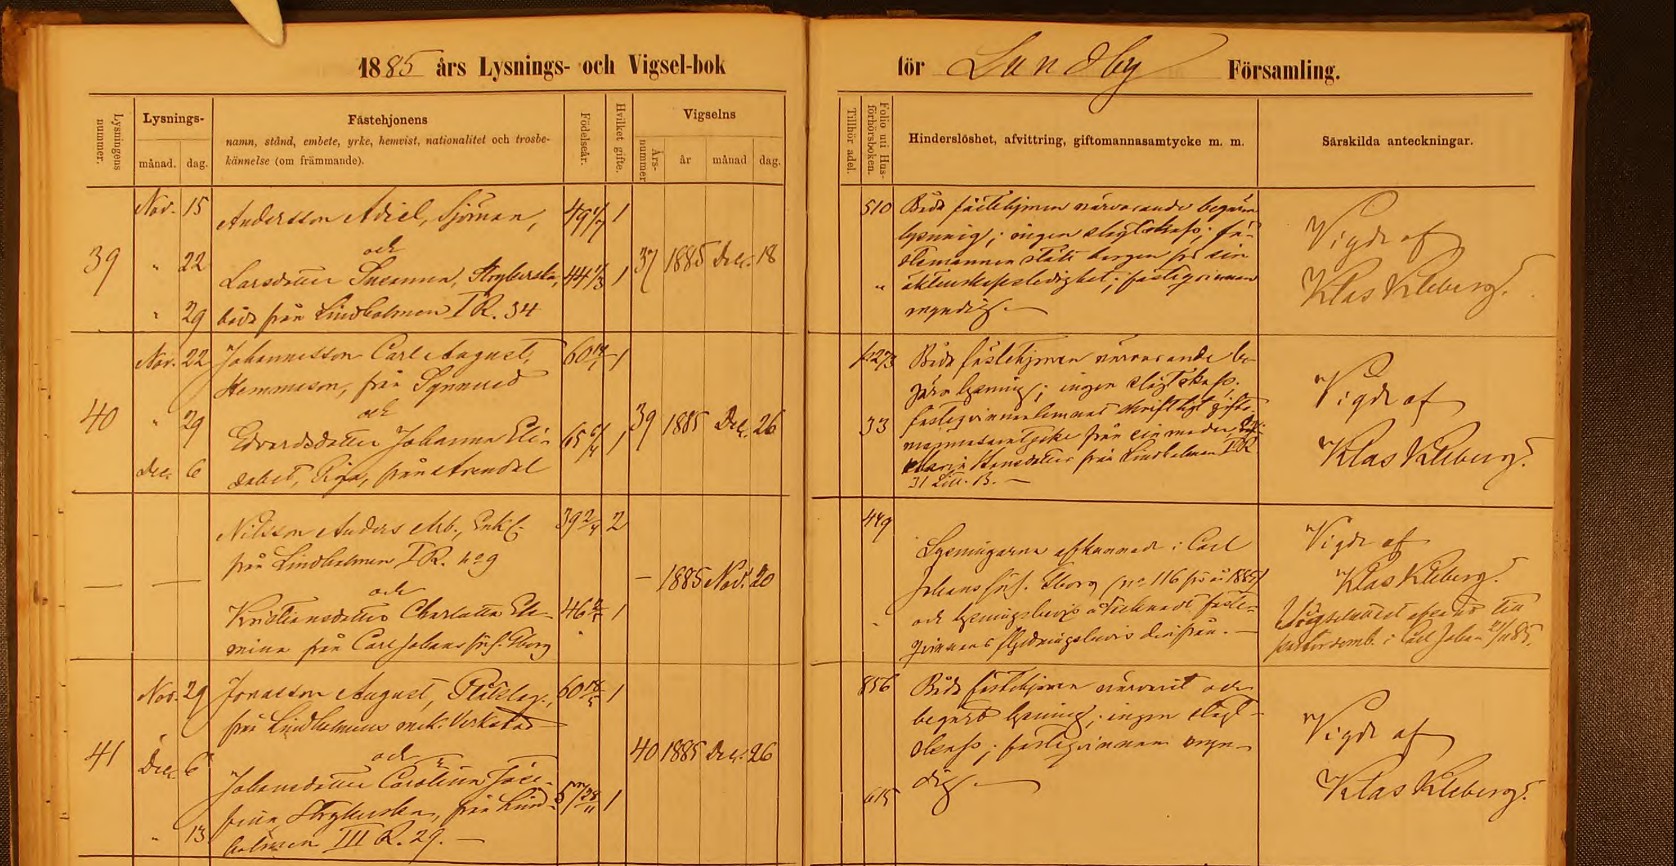 1885 års Lysnings- och Vigsel-bok
för Lundby Församling.
Lysningens nummer.
Lysnings-
månad. dag.
Fästehjonens
namn, stånd, embete, yrke, hemvist, nationalitet och trosbe-
kännelse (om främmande).
Födelseår.
Hvilket gifte.
Vigselns
Års-nummer
år månad dag.
Tillhör adel.
Folio uti Hus-
förhörsboken.
Hinderslöshet, afvittring, giftomannasamtycke m. m.
Särskilda anteckningar.
39
Nov. 15
" 22
" 29
Andersson Adiel, Sjöman,
och
Larsdotter Susanna, Strykerska,
båda från Lindholmen I R. 34
49 1
44 1
37 1885 Dec. 18
510
Båda fästehjonen närvarande begära
lysning; ingen slägtskap; fä-
stemannen ställt borgen för sin
äktenskapsledighet; fästeqvinnan
myndig.
Vigde af
Klas Kleberg.
40
Nov. 22
" 29
Dec. 6
Johannesson Carl August,
från
och
Edvardsdotter Johanna Eli-
sabet, Piga, från Arendal
60 1
65 1
39 1885 Dec. 26
33
Båda fästehjonen närvarande be-
gära lysning; ingen slägtskap.
Fästeqvinnan lemnat skriftligt gifto-
mannasamtycke från sin moder
Maria Hansdotter från Lindholmen I R
31 Litt. B.
Vigde af
Klas Kleberg.
Nilsson Anders Arb., Enkl.
från Lindholmen I R. No 9
och
Kristiansdotter Charlotta
mina från Carl Johans förs. Gborg
39 2
46 1
— 1885 Nov. 20
449
Lysningarna afkunnade i Carl
Johans förs. Gborg (No 116 för år 1885)
och lysningsbevis
qvinnans flyttningsbevis derifrån.
Vigde af
Klas Kleberg.
Vigselattest afsänd till
pastorsemb. i Carl Johan 21/11 85.
41
Nov. 29
Dec. 6
" 13
Jonasson August, Plåtslag.,
från Lindholmens mek. Verkstad
och
Johansdotter Carolina Jose-
fina Strykerska, från Lind-
holmen III R. 29.
60 18/5 1
57 28/11 1
40 1885 Dec. 26
856
615
Båda fästehjonen närvarit och
begärt lysning; ingen slägt-
skap; fästeqvinnan myn-
dig.
Vigde af
Klas Kleberg.